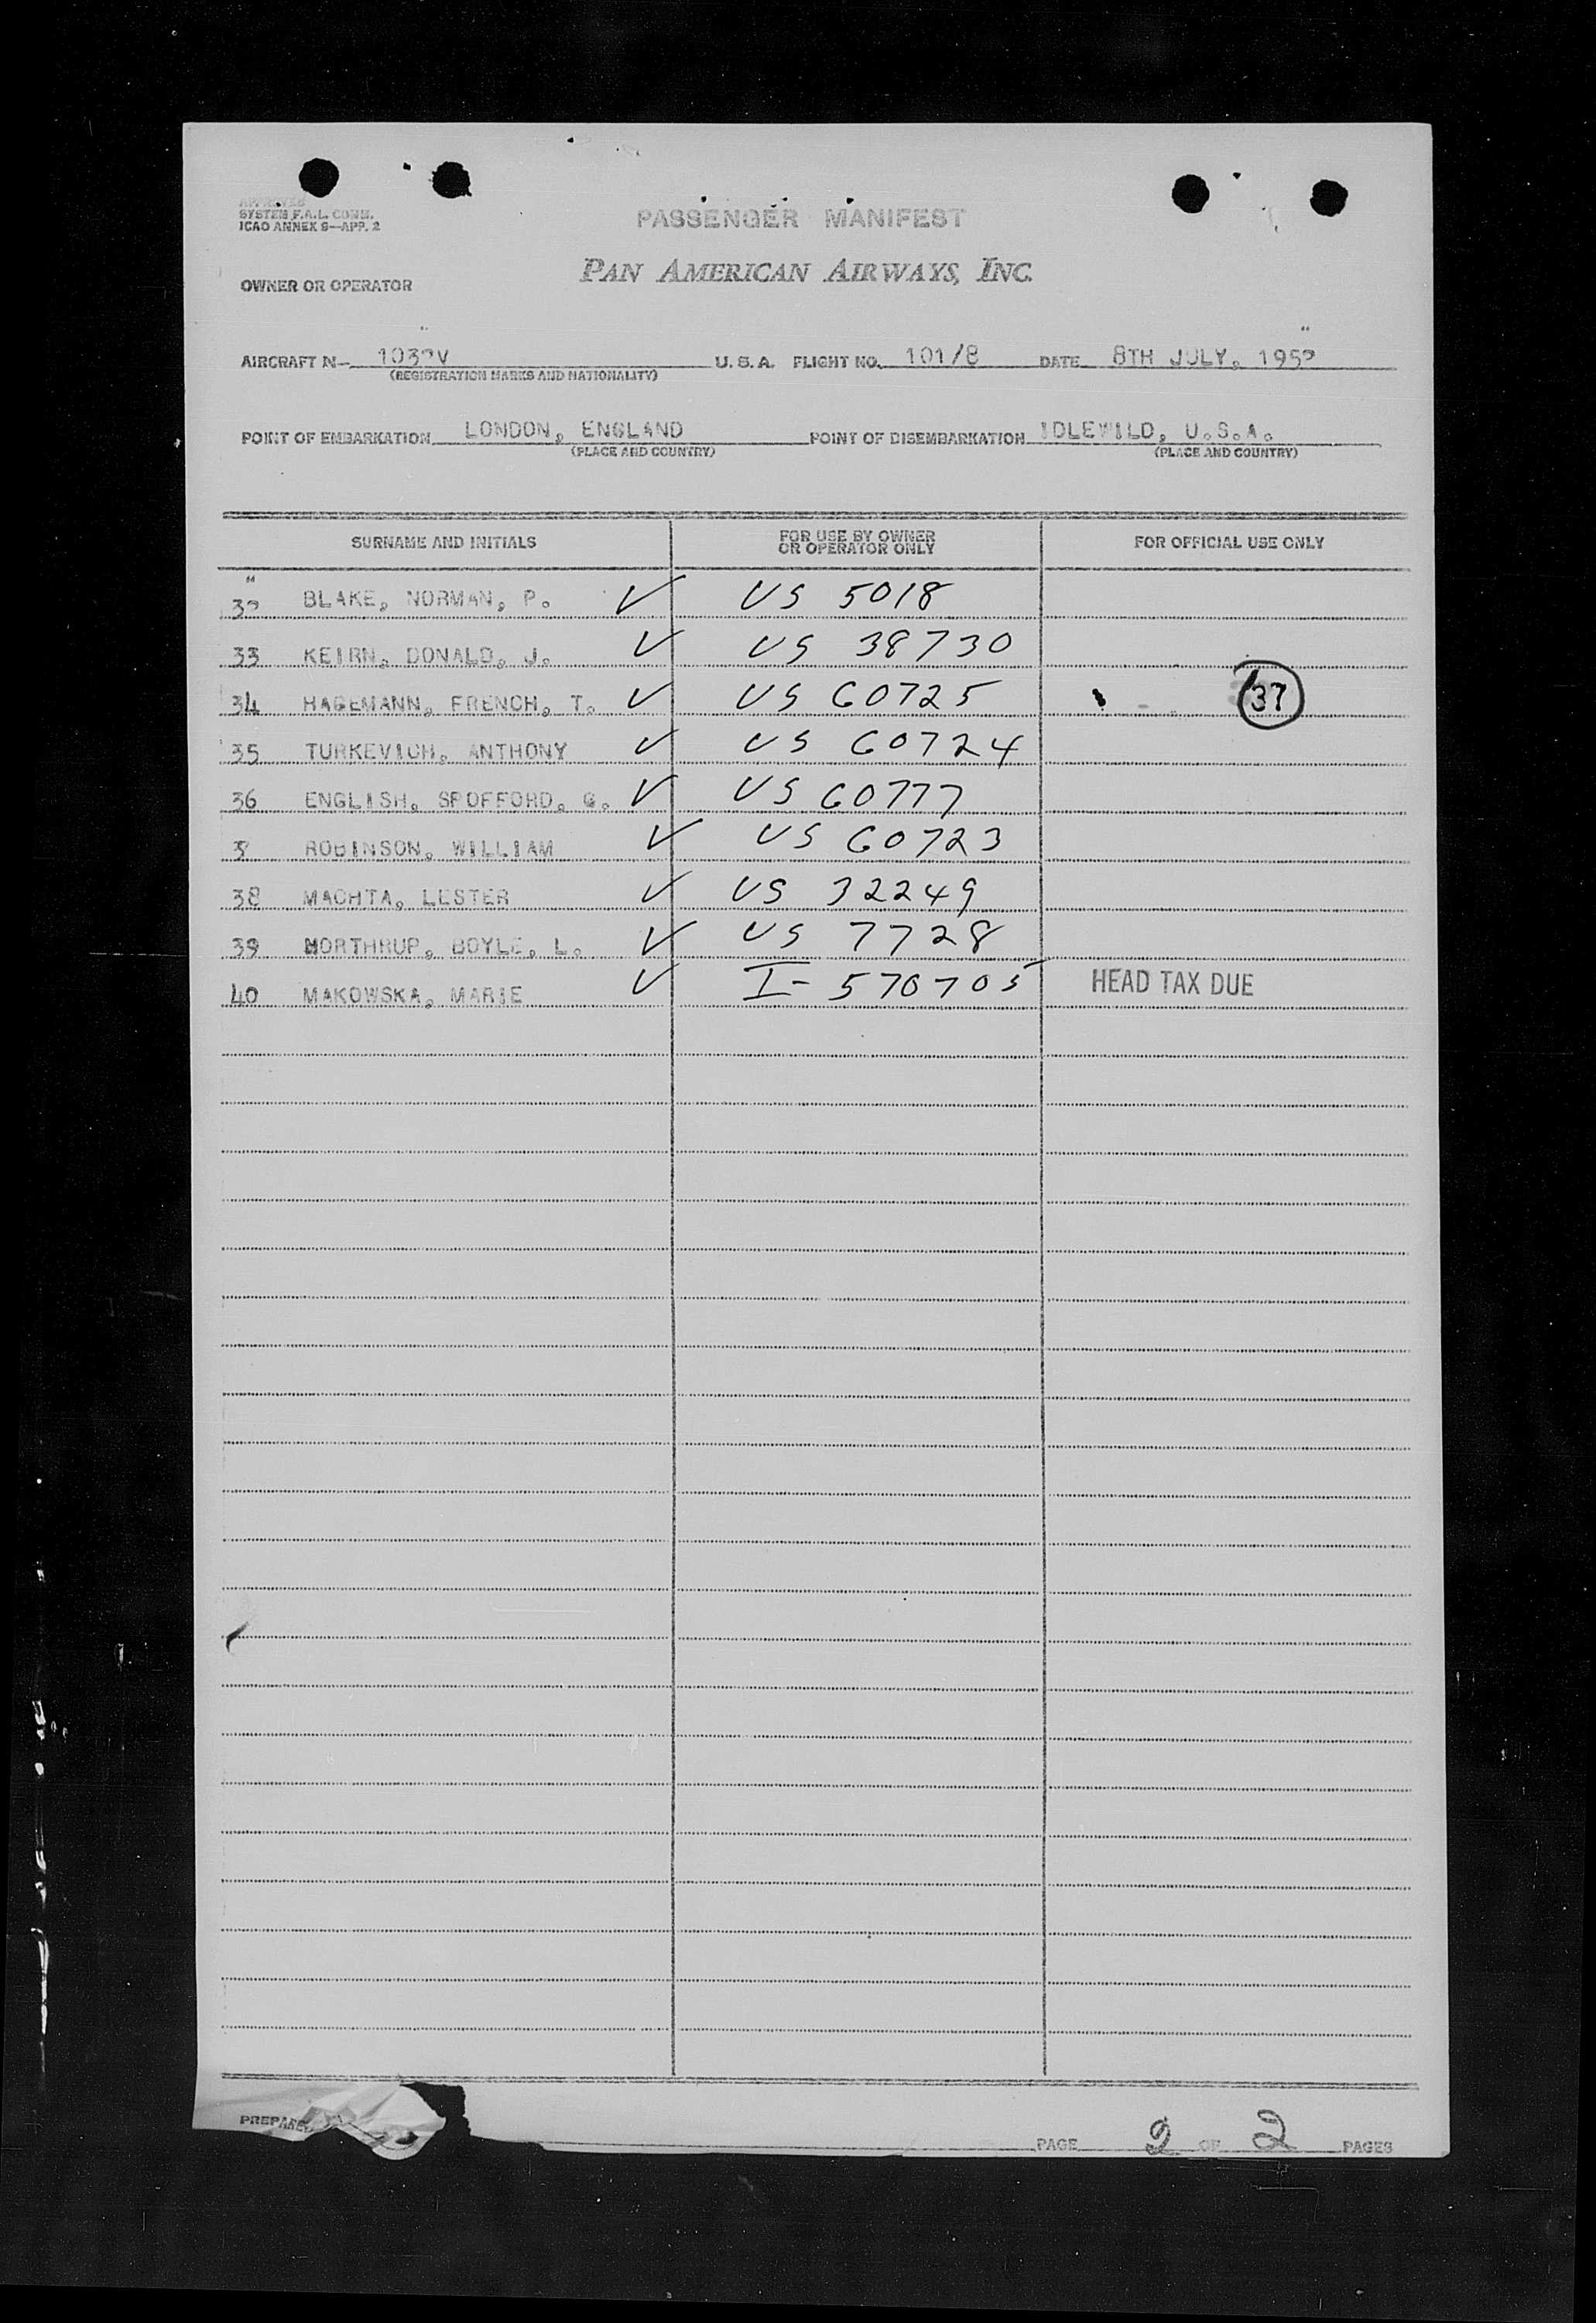 APPROVED
SYSTEM F.A.L. COMM.
ICAO ANNEX 9—APP. 2
PASSENGER MANIFEST
OWNER OR OPERATOR PAN AMERICAN AIRWAYS, INC.
AIRCRAFT N- 1032V U.S.A. FLIGHT NO. 101/8 DATE 8TH JULY, 1952
(REGISTRATION MARKS AND NATIONALITY)
POINT OF EMBARKATION LONDON, ENGLAND POINT OF DISEMBARKATION IDLEWILD, U.S.A.
(PLACE AND COUNTRY) (PLACE AND COUNTRY)
SURNAME AND INITIALS FOR USE BY OWNER OR OPERATOR ONLY FOR OFFICIAL USE ONLY
32 BLAKE, NORMAN, P. ✓ US 5018
33 KEIRN, DONALD, J. ✓ US 38730
34 HAGEMANN, FRENCH, T. ✓ US 60725 37
35 TURKEVICH, ANTHONY ✓ US 60724
36 ENGLISH, SPOFFORD, G. ✓ US 60777
3 ROBINSON, WILLIAM ✓ US 60723
38 MACHTA, LESTER ✓ US 32249
39 NORTHRUP, DOYLE, L. ✓ US 7728
40 MAKOWSKA, MARIE ✓ I- 570705 HEAD TAX DUE
PREPARE
PAGE 2 OF 2 PAGES